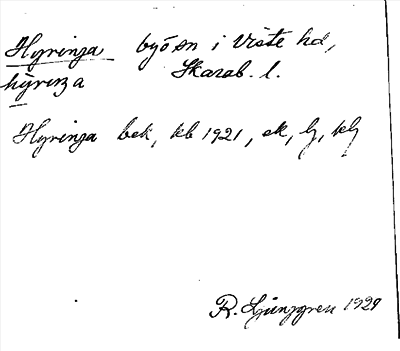 Hyringa byö sn i Viste hd,
hýrıŋa Skarab. l.
Hyringa bek, kb 1921, ek, lj, klj
R. Ljunggren 1929